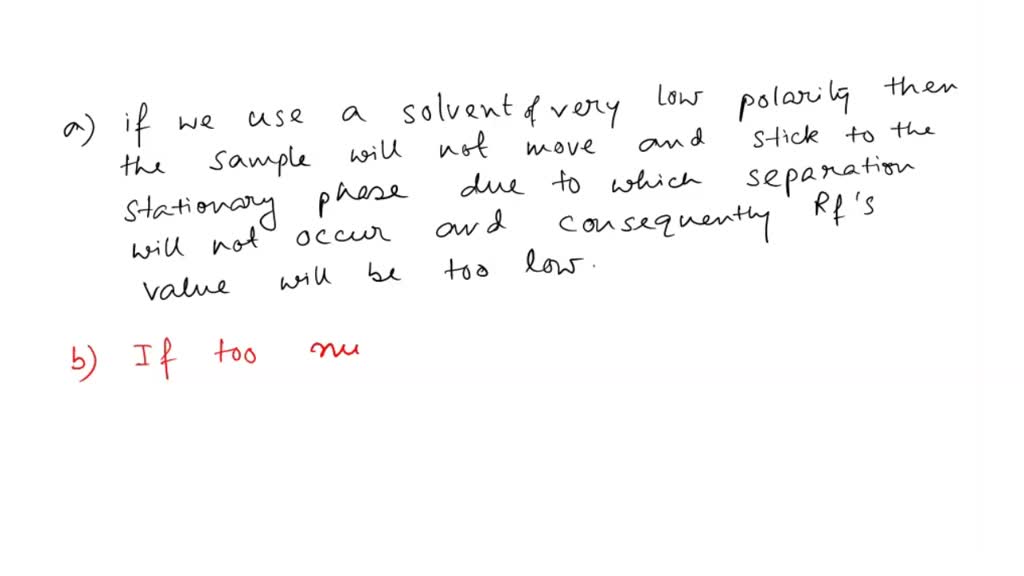 a) if we use a solvent of very low polarity then
the sample will not move and stick to the
stationary phase due to which separation
will not occur and consequently Rf's
value will be too low.
b) If too